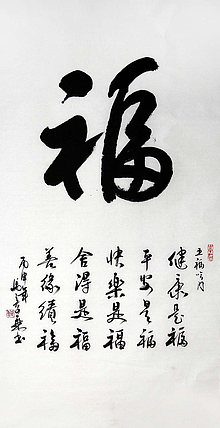 福
五福
健康是福
平安是福
快樂是福
舍得是福
善緣續福
丙申年